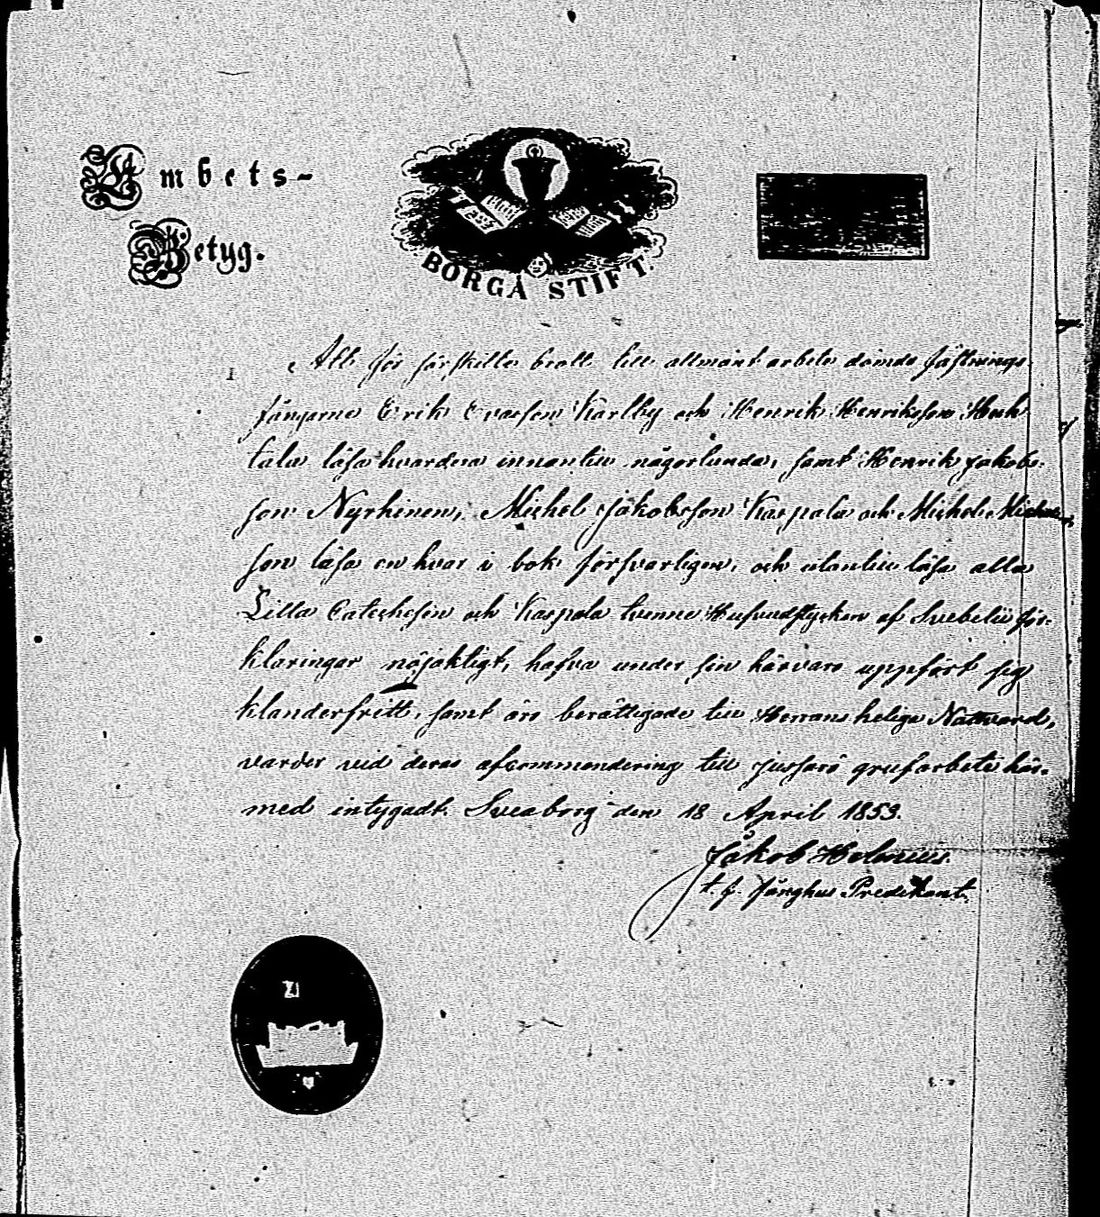 Embets-
Betyg.
BORGÅ STIFT.
Att för särskilte brott till allmänt arbete dömde fästnings-
fångarne Erik Ersson Karlby och Henrik Henriksson Huh
tala läsa hvardera innantill någorlunda, samt Henrik Jakobs-
son Nyrhinen, Michel Jakobsson Kaspala och Michel Michels
son läsa en hvar i bok försvarligen, och utantill läsa alla
Lilla Catechesen och Kaspala tvenne Hufvudstycken af Svebelii för-
klaringar nöjaktigt, hafva under sin härvaro uppfört sig
klanderfritt, samt äro berättigade till Herrans heliga Nattvard,
varder vid deras afcommendering till Jussarö grufarbete här-
med intygadt. Sveaborg den 18 April 1853.
Jakob Helenius
t. f. Fånghus Predikant.